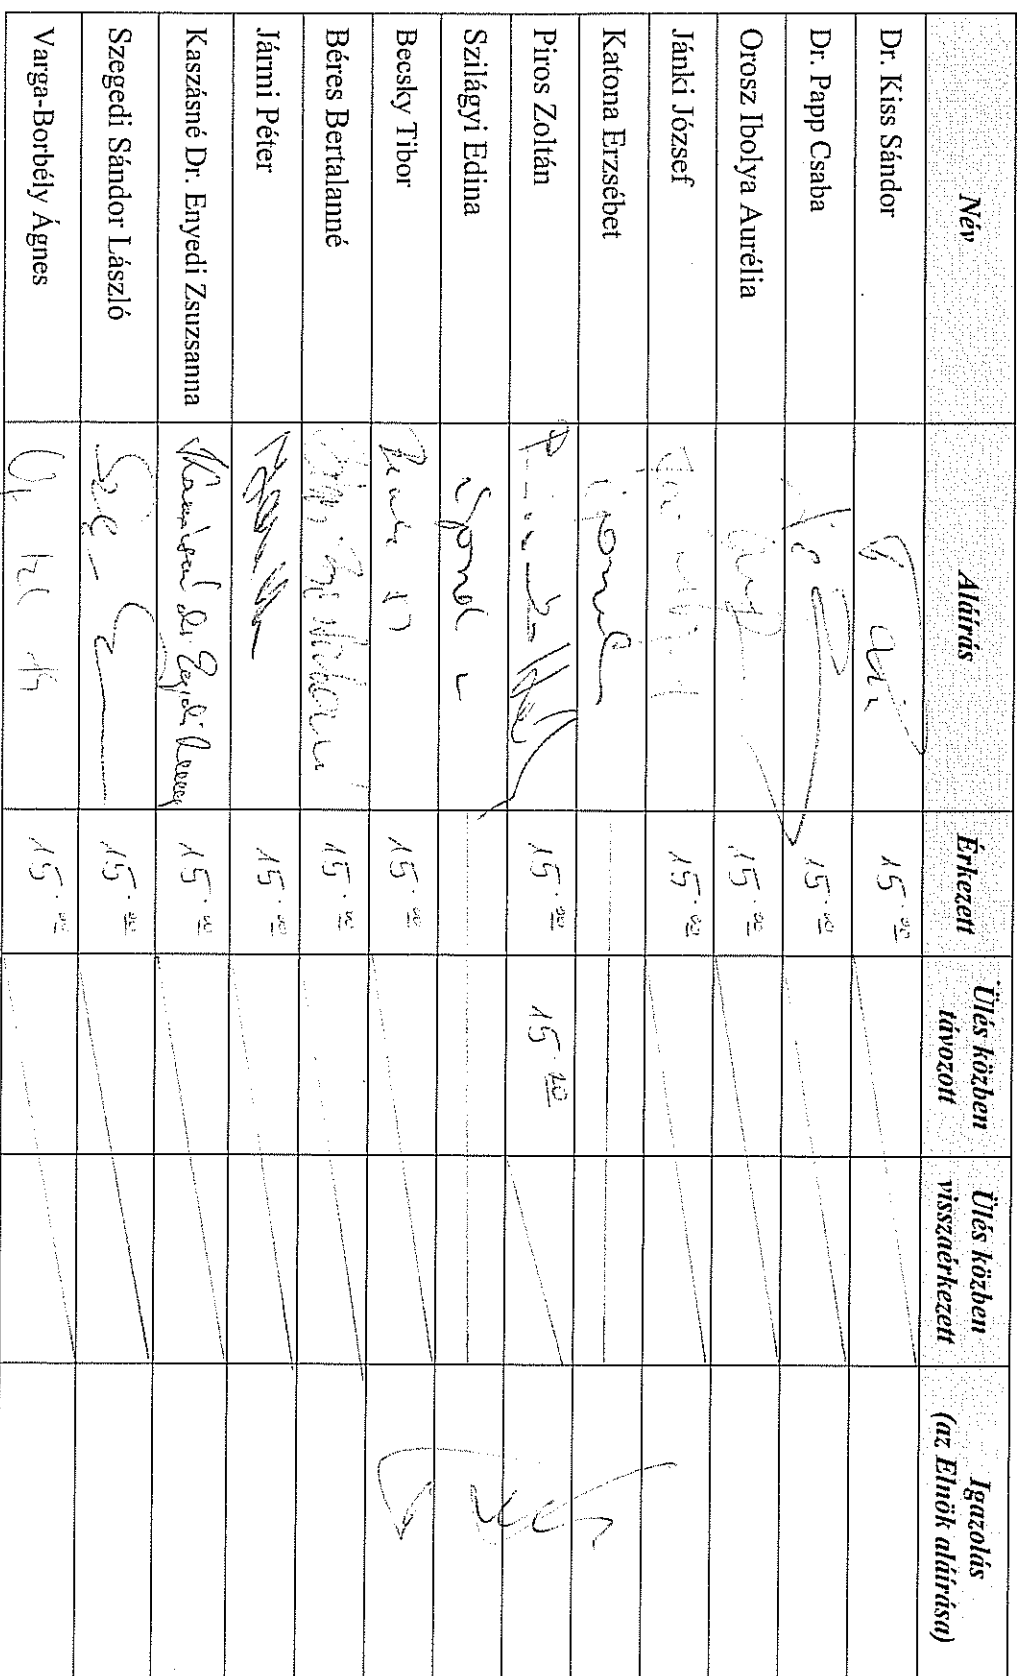 Név Aláírás Érkezett Ülés közben távozott Ülés közben visszaérkezett Igazolás (az Elnök aláírása)
Dr. Kiss Sándor 15.00
Dr. Papp Csaba 15.00
Orosz Ibolya Aurélia 15.00
Jánki József 15.00
Katona Erzsébet igazolt
Piros Zoltán 15.00 15.20
Szilágyi Edina
Becsky Tibor 15.00
Béres Bertalanné 15.00
Jármi Péter 15.00
Kaszásné Dr. Enyedi Zsuzsanna 15.00
Szegedi Sándor László 15.00
Varga-Borbély Ágnes 15.00